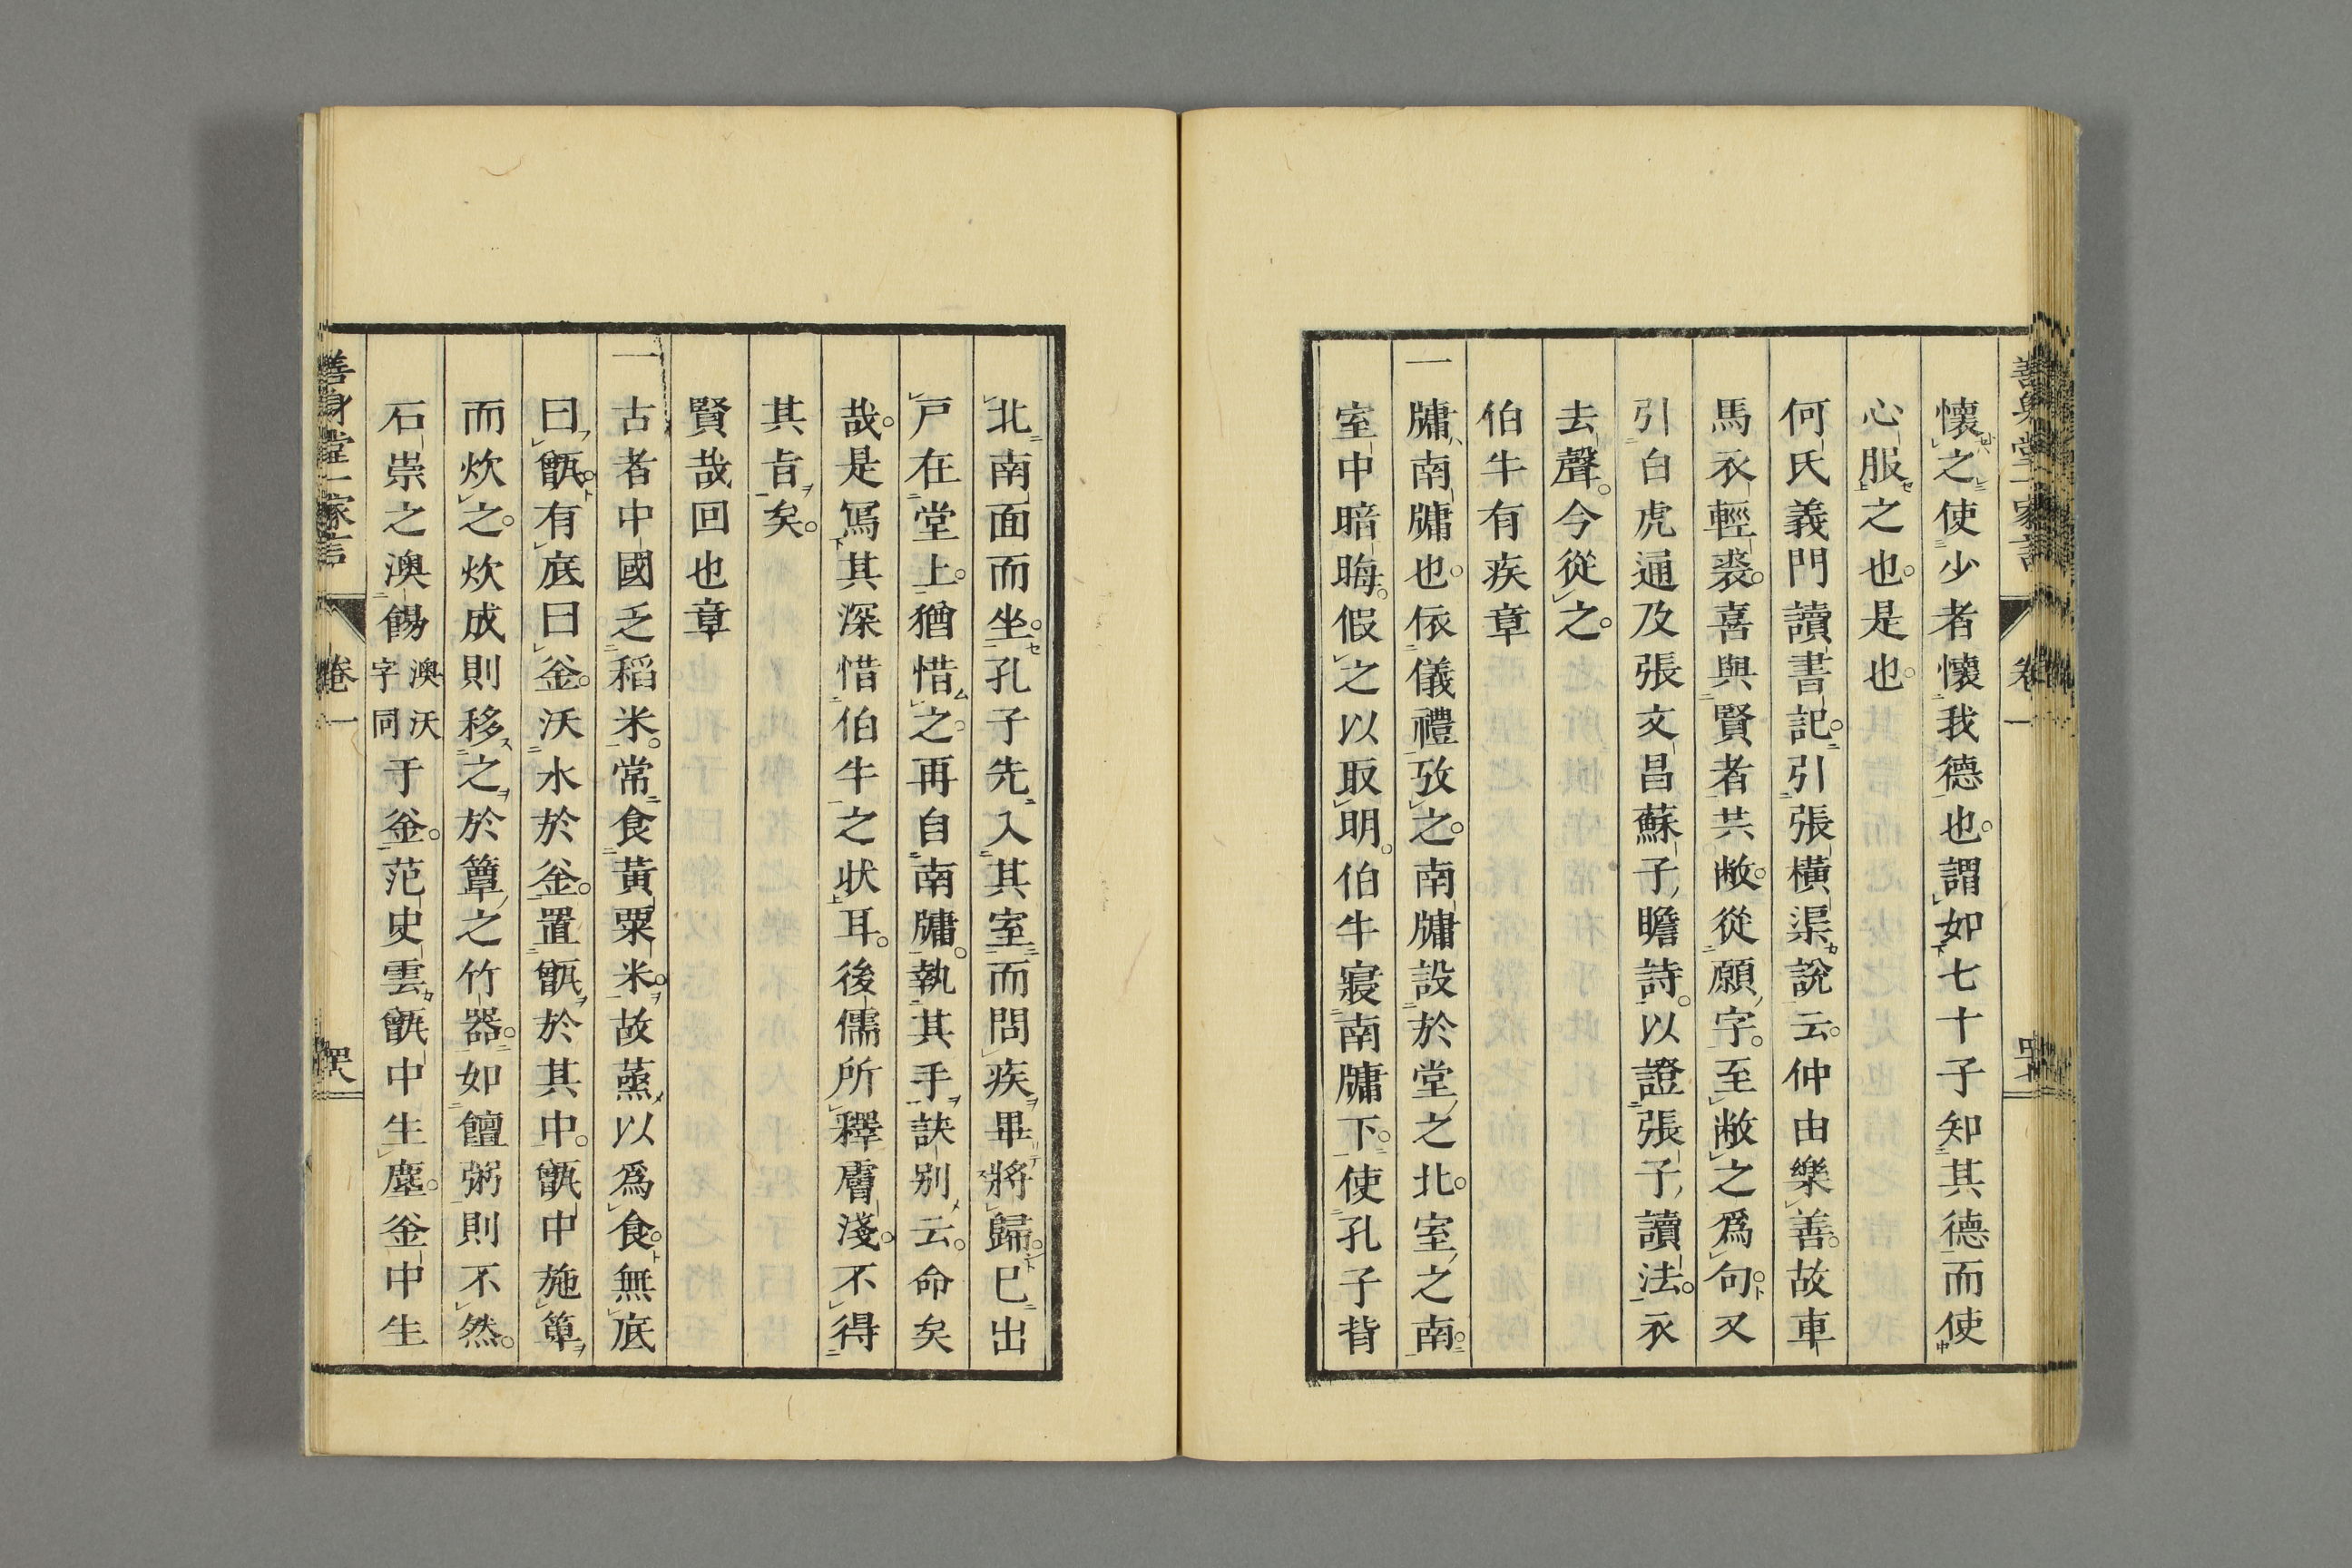 懷之使少者懷我德也謂如七十子知其德而使
心服之也是也
何氏義門讀書記引張橫渠說云仲由樂善故車
馬衣輕裘喜與賢者共敝從願字至敝之爲句又
引白虎通及張文昌蘇子瞻詩以證張子讀法衣
去聲今從之
伯牛有疾章
一牗南牗也依儀禮攷之南牗設於堂之北室之南
室中暗晦假之以取明伯牛寢南牗下使孔子背
北南面而坐孔子先入其室而問疾畢將歸已出
戸在堂上猶惜之再自南牗執其手訣別云命矣
哉是寫其深惜伯牛之状耳後儒所釋膚淺不得
其旨矣
賢哉回也章
一古者中國乏稻米常食黃粟米故蒸以爲食無底
曰甑有底曰釜沃水於釜置甑於其中甑中施箄
而炊之炊成則移之於簞之竹器如饘粥則不然
石崇之澳餳澳沃字同于釜范史雲甑中生塵釜中生
善身堂一家言 卷一